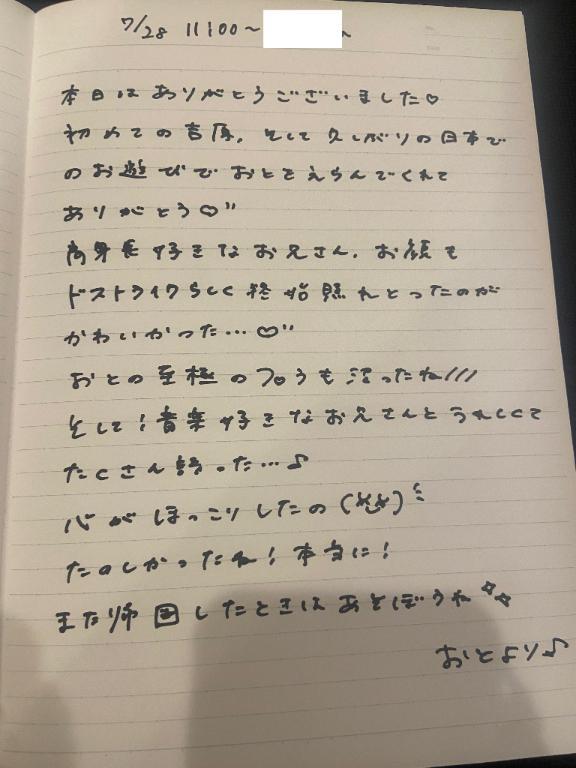 7/28 11:00〜
本日はありがとうございました♡
初めての吉原、そして久しぶりの日本で
のお遊びでおとをえらんでくれて
ありがとう♡"
高身長好きなお兄さん、お顔も
ドストライクらしく終始照れとったのが
かわいかった…♡"
おとの至極のフ〇うも沼ったね///
そして!音楽好きなお兄さんとうれしくて
たくさん語った…♪
心がほっこりしたの
たのしかったね!本当に!
また帰国したときはあそぼうね
おとより♪